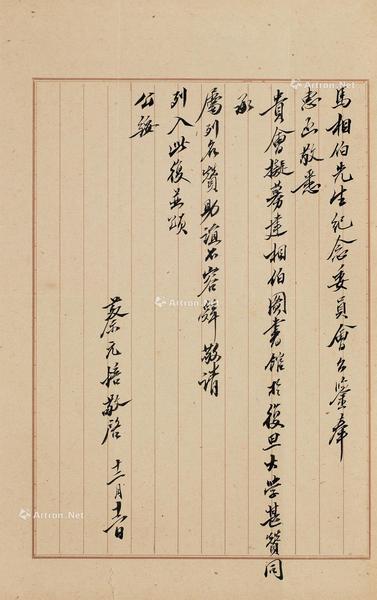 馬相伯先生紀念委員會公鑒奉
惠函敬悉
貴會擬募建相伯圖書館於復旦大学甚贊同
承
屬列名贊助誼不容辭敬請
列入此復並頌
公綏
蔡元培敬啓 十二月十六日
Artron.Net
Artron.Net
Artron.Net